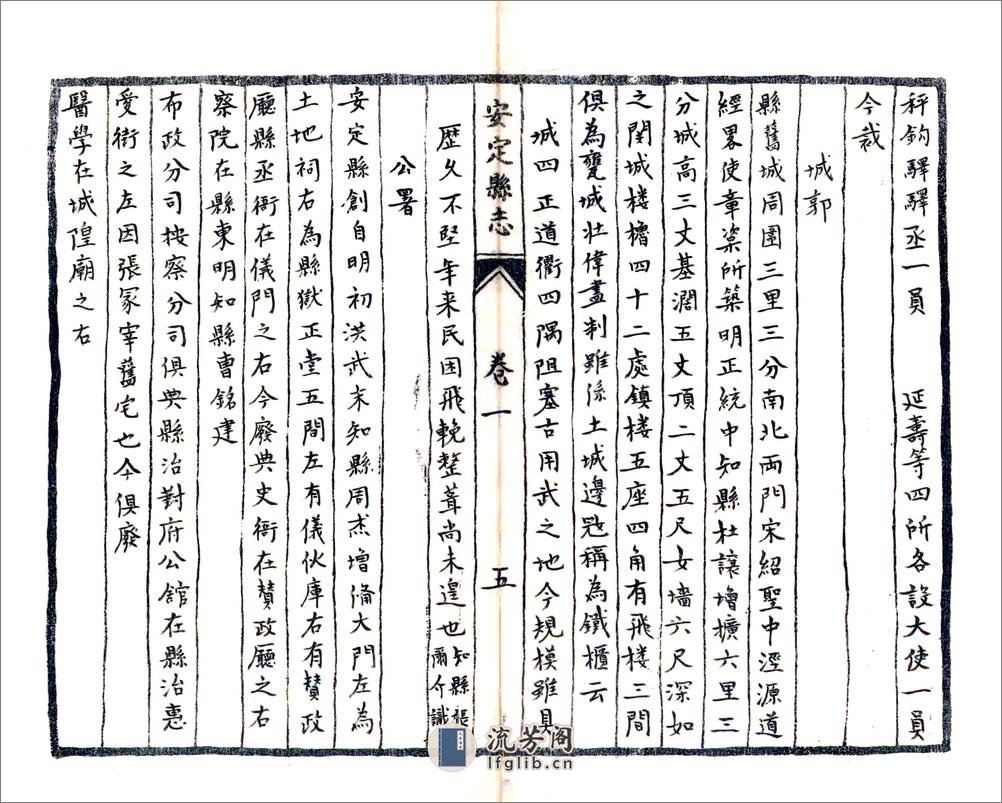 秤鈎驛驛丞一員　延壽等四所各設大使一員
今裁
城郭
縣舊城周圍三里三分南北兩門宋紹聖中涇源道
經畧使章楶所築明正統中知縣杜讓增擴六里三
分城高三丈基濶五丈頂二丈五尺女墻六尺深如
之関城楼櫓四十二處鎮楼五座四角有飛楼三間
俱為甕城壯偉盡制雖係土城邊冦稱為鐵櫃云
城四正道衢四隅阻塞古用武之地今規模雖具
安定縣志　卷一　五
歷久不堅年来民困飛輓整葺尚未遑也知縣張
爾介識
公署
安定縣創自明初洪武末知縣周杰增脩大門左為
土地祠右為縣獄正堂五間左有儀伙庫右有賛政
廳縣丞衙在儀門之右今廢典史衙在賛政廳之右
察院在縣東明知縣曹銘建
布政分司按察分司俱典縣治對府公舘在縣治惠
愛街之左因張冢宰舊宅也今俱廢
醫學在城隍廟之右
流芳阁
lfglib.cn